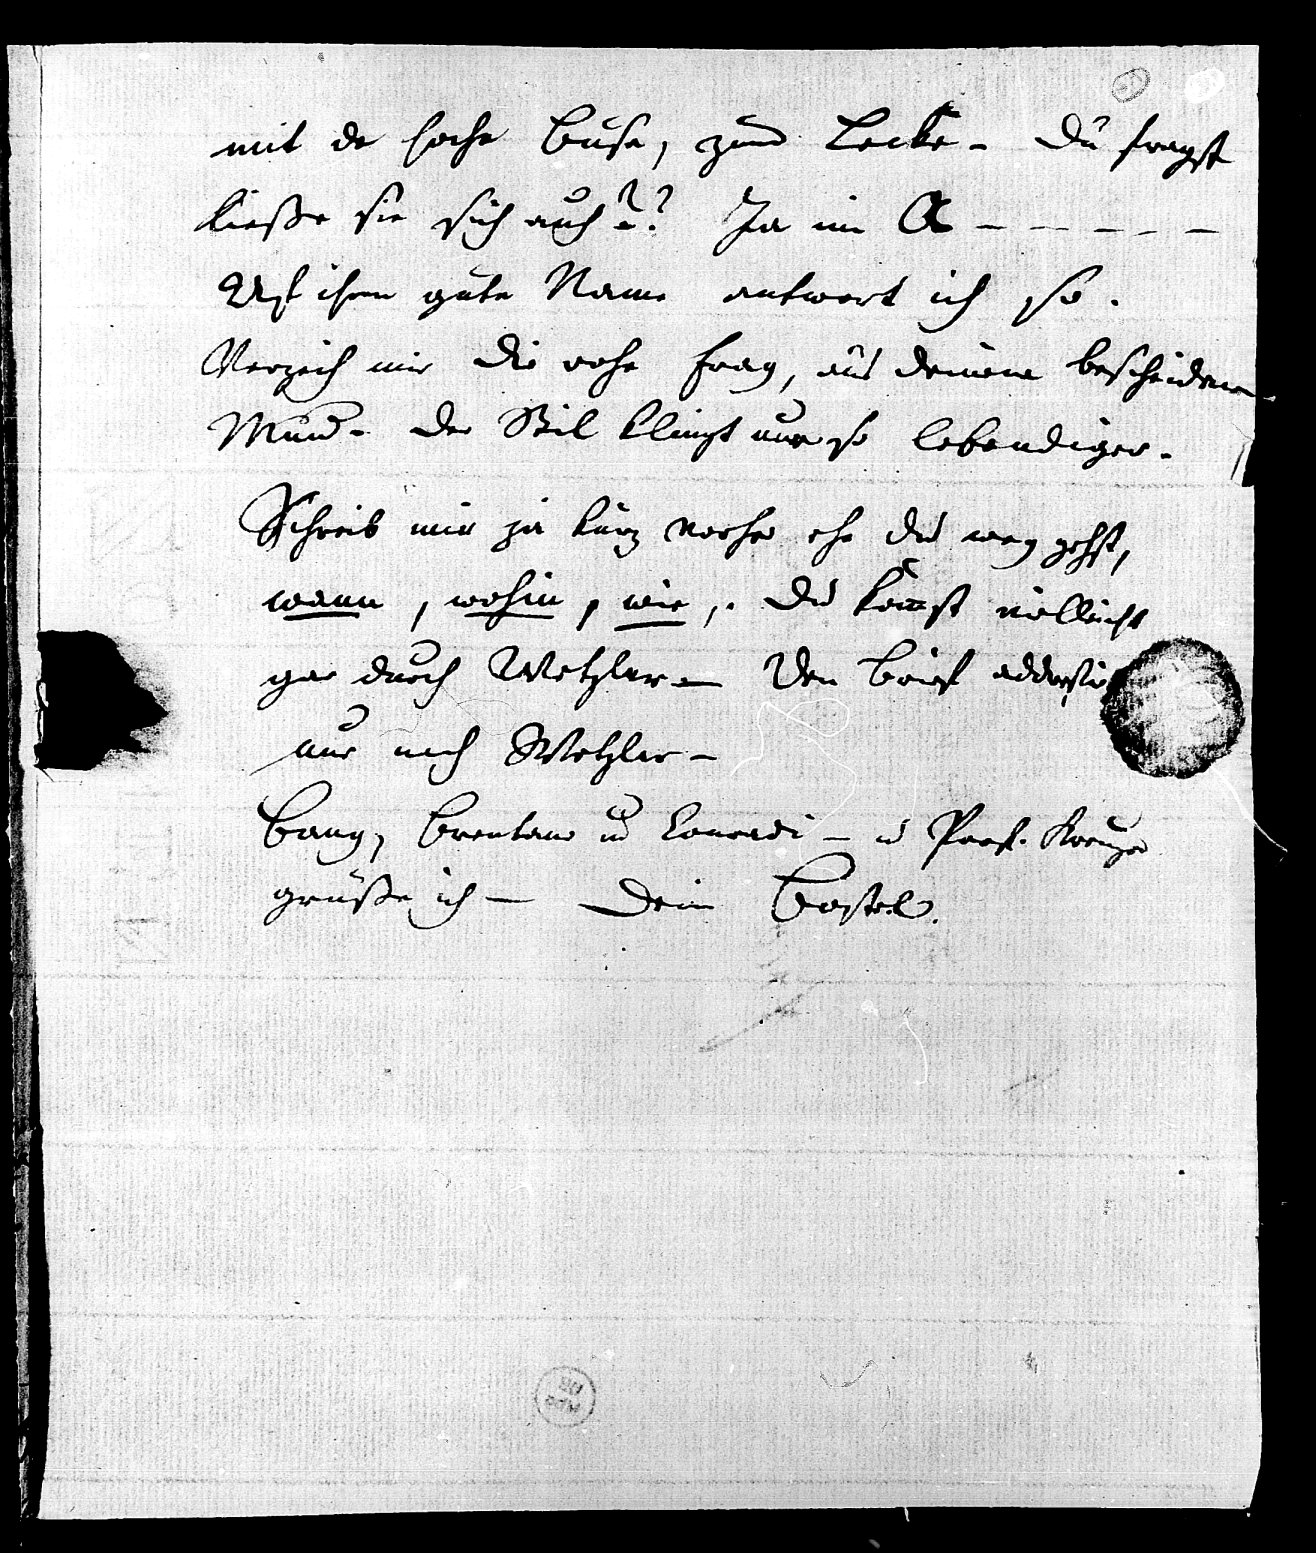 mit de hohe Buse, zum Lecke – Du fragst
ließe sie sich auch?? Ja im A – – – – –
Auf ihren gute Name antwort ich so.
Verzeih mir die rohe Frag, aus deinem bescheidenen
Mund – der Stil klingt nur so lebendiger.
Schreib mir ja kurz vorher ehe du weg gehst,
wann, wohin, wie,. Du kommst vielleicht
gar durch Wetzlar – Den Brief addressir
nur nach Wetzlar –
Bang, Brentano u Conradi – u Prof. Kreuzer
grüße ich – Dein Bostel.